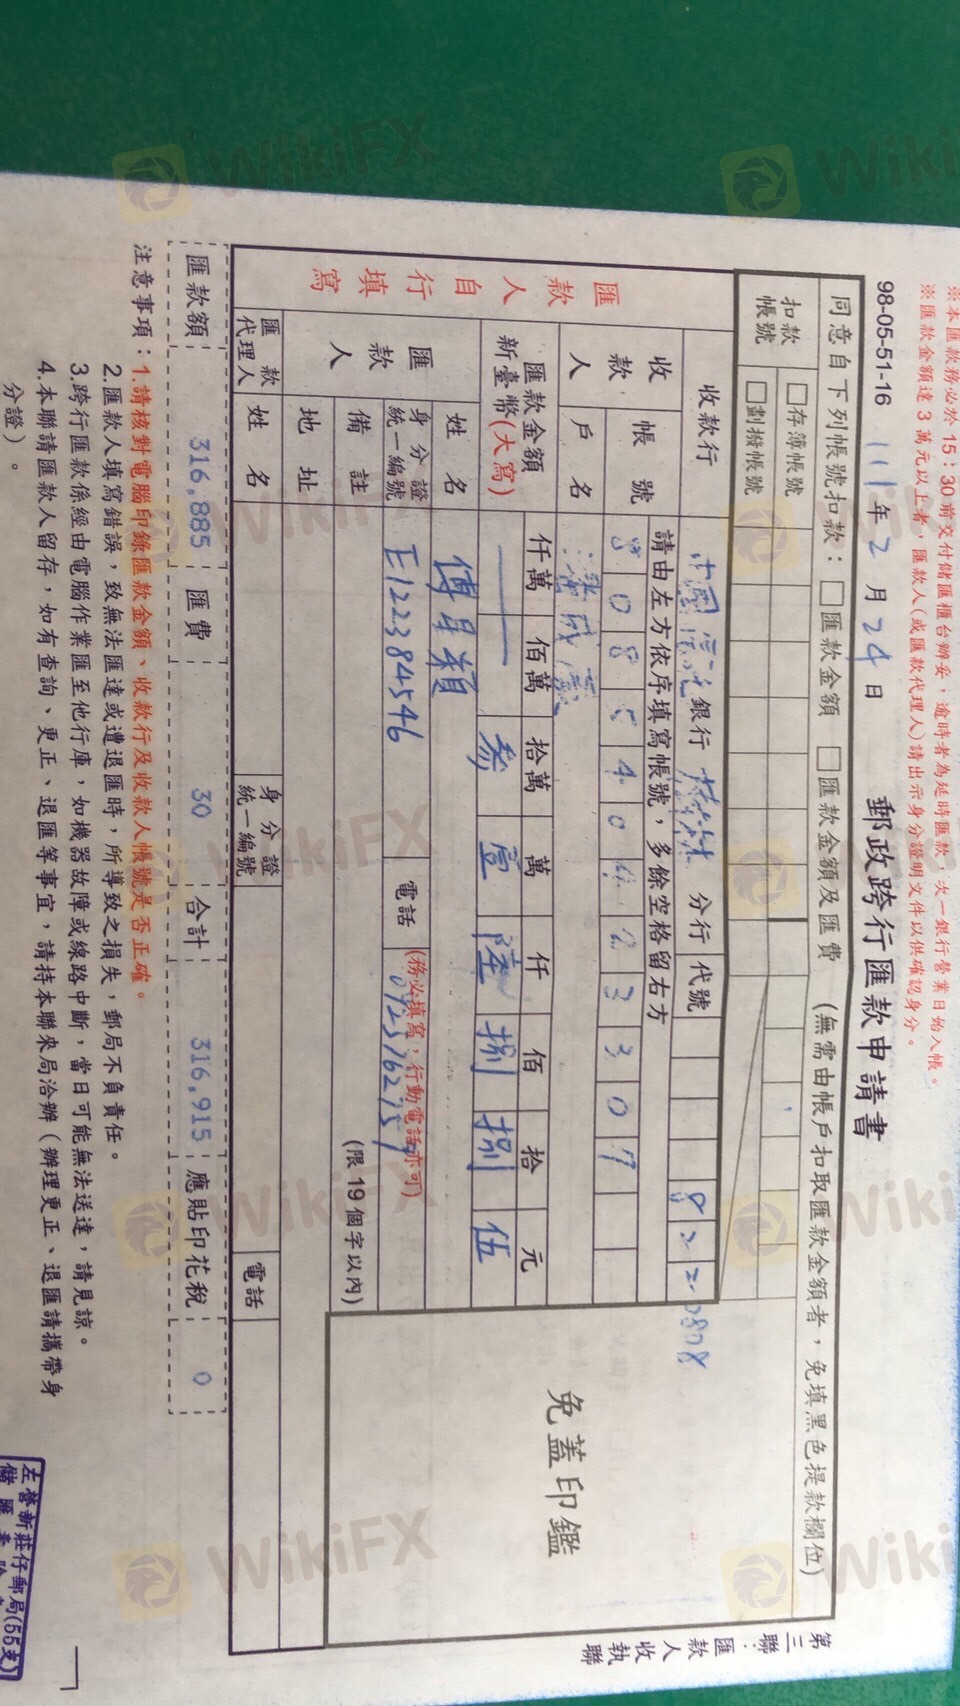 ※本匯款務必於15:30前交付儲匯櫃台辦妥，逾時者為延時匯款，次一銀行營業日始入帳。
※匯款金額達3萬元以上者，匯款人(或匯款代理人)請出示身分證明文件以供確認身分。
98-05-51-16 111年2月24日 郵政跨行匯款申請書
同意自下列帳號扣款：□匯款金額 □匯款金額及匯費 (無需由帳戶扣取匯款金額者，免填黑色提款欄位)
扣款帳號 □存簿帳號
□劃撥帳號
匯款人自行填寫
收款行 中國信託銀行 分行 代號 822 0808
收款人 帳號 請由左方依序填寫帳號，多餘空格留右方
戶名
匯款金額 新臺幣(大寫) 仟萬 佰萬 拾萬 萬 仟 佰 拾 元
參 壹 陸 捌 捌 伍
匯款人 姓名
身分證統一編號 E122384546 電話 (務必填寫，行動電話亦可)
備註 (限19個字以內)
地址
匯款代理人 姓名 身分證統一編號 電話
免蓋印鑑
第三聯：匯款人收執聯
匯款額 316,885 匯費 30 合計 316,915 應貼印花稅 0
注意事項：1.請核對電腦印錄匯款金額、收款行及收款人帳號是否正確。
2.匯款人填寫錯誤，致無法匯達或遭退匯時，所導致之損失，郵局不負責任。
3.跨行匯款係經由電腦作業匯至他行庫，如機器故障或線路中斷，當日可能無法送達，請見諒。
4.本聯請匯款人留存，如有查詢、更正、退匯等事宜，請持本聯來局洽辦（辦理更正、退匯請攜帶身
分證）。
左營新莊仔郵局(55支)
WikiFX